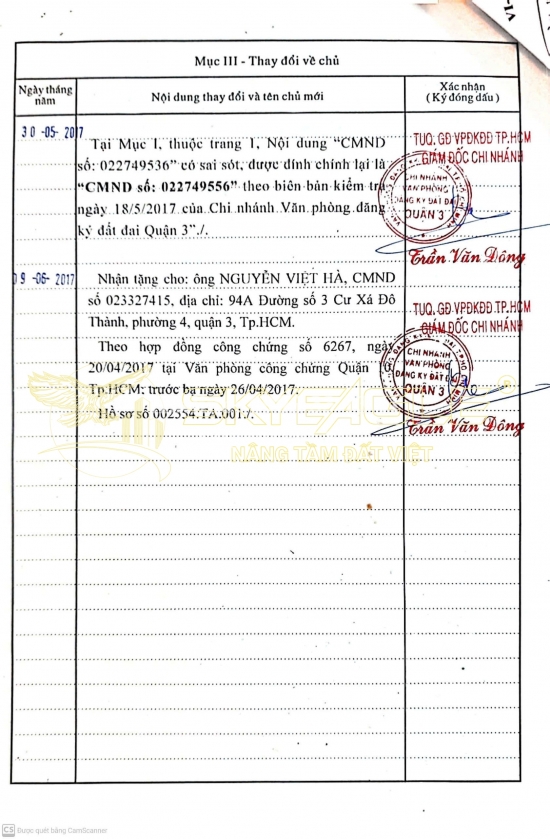 Mục III - Thay đổi về chủ
Ngày tháng năm
Nội dung thay đổi và tên chủ mới
Xác nhận
( Ký đóng dấu )
30 -05- 2017
Tại Mục I, thuộc trang 1, Nội dung “CMND
số: 022749536” có sai sót, được đính chính lại là
“CMND số: 022749556” theo biên bản kiểm tra
ngày 18/5/2017 của Chi nhánh Văn phòng đăng
ký đất đai Quận 3”./.
TUQ. GĐ VPĐKĐĐ TP.HCM
GIÁM ĐỐC CHI NHÁNH
CHI NHÁNH
VĂN PHÒNG
ĐĂNG KÝ ĐẤT ĐAI
QUẬN 3
Trần Văn Dông
09 -06- 2017
Nhận tặng cho: ông NGUYỄN VIỆT HÀ, CMND
số 023327415, địa chỉ: 94A Đường số 3 Cư Xá Đô
Thành, phường 4, quận 3, Tp.HCM.
Theo hợp đồng công chứng số 6267, ngày
20/04/2017 tại Văn phòng công chứng Quận
Tp.HCM; trước bạ ngày 26/04/2017.
Hồ sơ số 002554.TA.001./.
TUQ. GĐ VPĐKĐĐ TP.HCM
GIÁM ĐỐC CHI NHÁNH
CHI NHÁNH
VĂN PHÒNG
ĐĂNG KÝ ĐẤT ĐAI
QUẬN 3
Trần Văn Dông
NÂNG TẦM ĐẤT VIỆT
CS Được quét bằng CamScanner